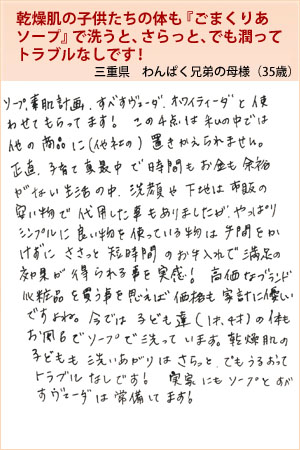 乾燥肌の子供たちの体も『ごまくりあ
ソープ』で洗うと、さらっと、でも潤って
トラブルなしです！
三重県　わんぱく兄弟の母様（35歳）
ソープ、素肌計画、すべすべヴェーダ、ホワイティーダと使
わせてもらってます！ この4点は私の中では
他の商品に(他社の)置きかえられません。
正直、子育て真最中で時間もお金も余裕
がない生活の中、洗顔や下地は市販の
安い物で代用した事もありましたが、やっぱり
シンプルに良い物を使っている物は手間をか
けずに ささっと短時間のお手入れで満足の
効果が得られる事を実感！ 高価なブランド
化粧品を買う事を思えば価格も家計に優しい
ですよね。今では子ども達(1才、4才)の体も
お風呂でソープで洗っています。乾燥肌の
子どもも洗いあがりはさらっと、でもうるおって
トラブルなしです！ 実家にもソープとすべ
すべヴェーダは常備してます！